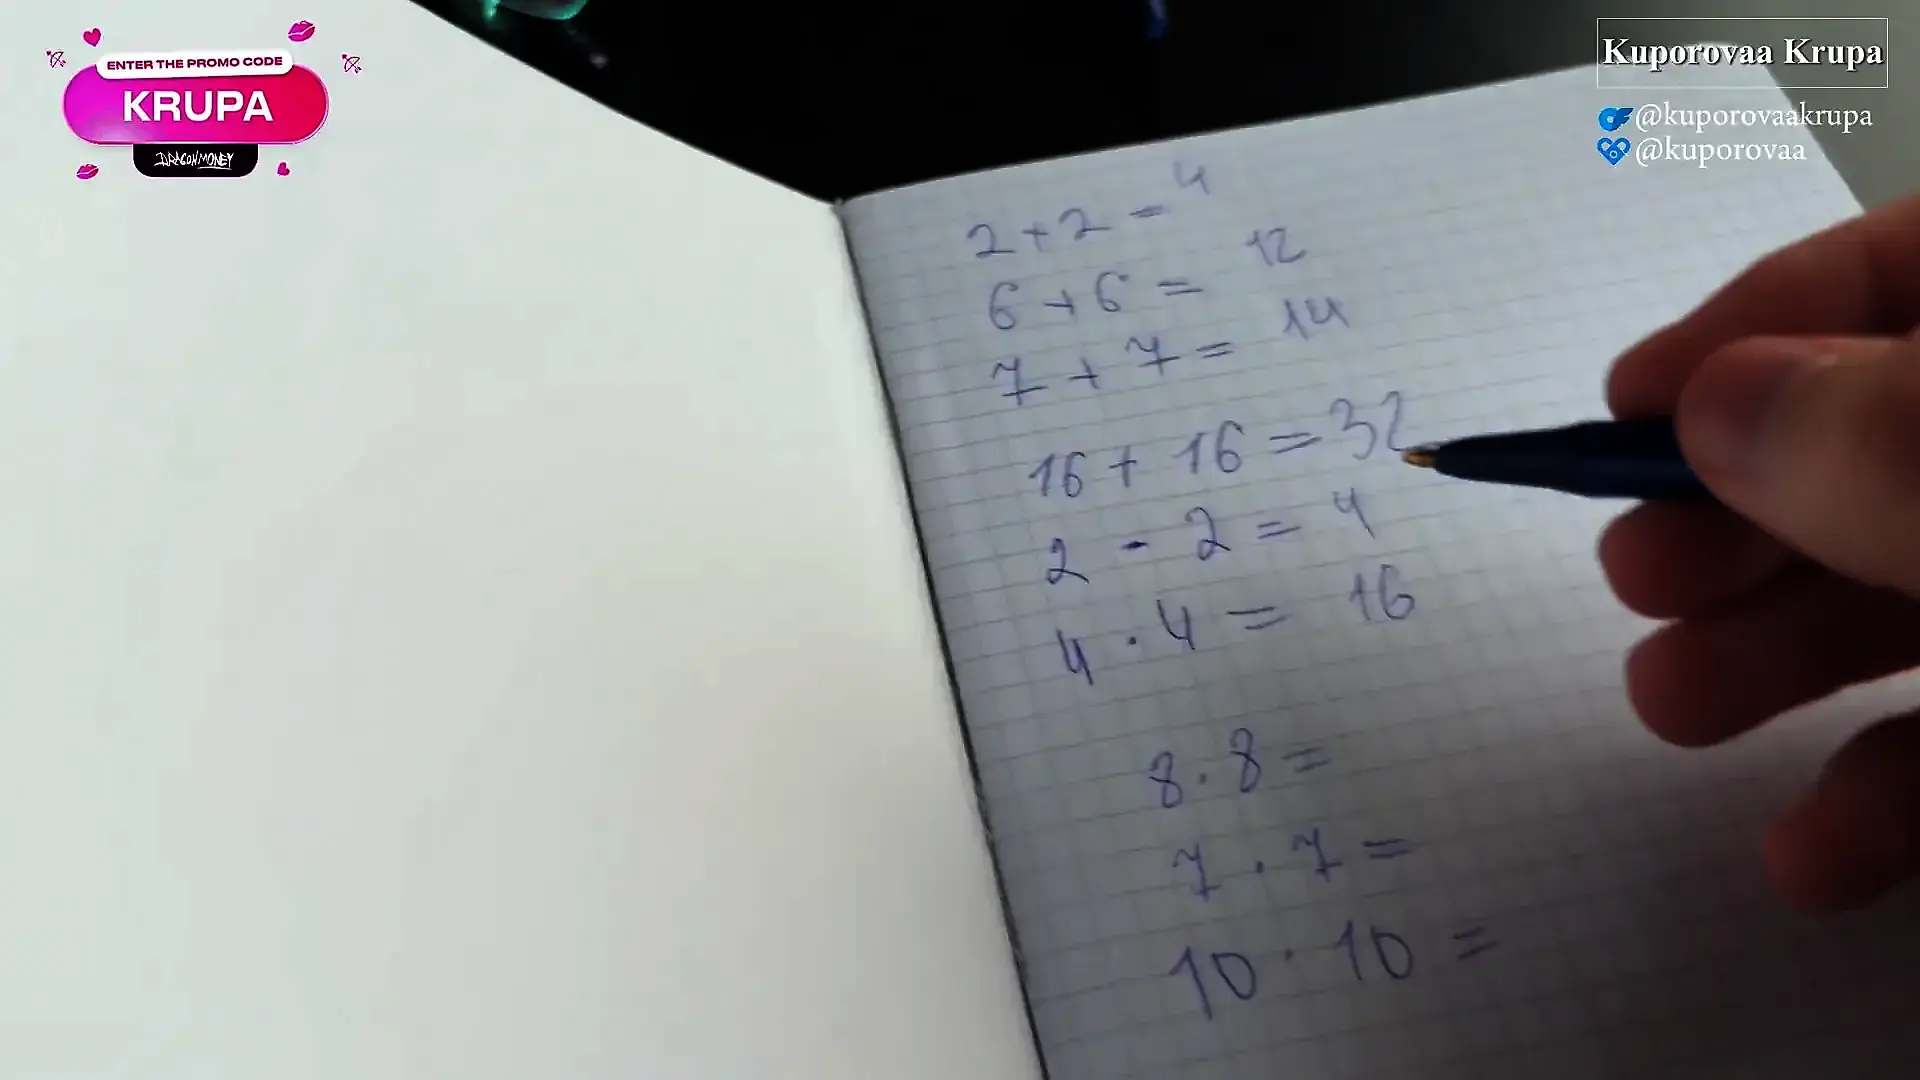 ENTER THE PROMO CODE
KRUPA
DRAGON MONEY
Kuporovaa Krupa
@kuporovaakrupa
@kuporovaa
2 + 2 = 4
6 + 6 = 12
7 + 7 = 14
16 + 16 = 32
2 · 2 = 4
4 · 4 = 16
8 · 8 =
7 · 7 =
10 · 10 =